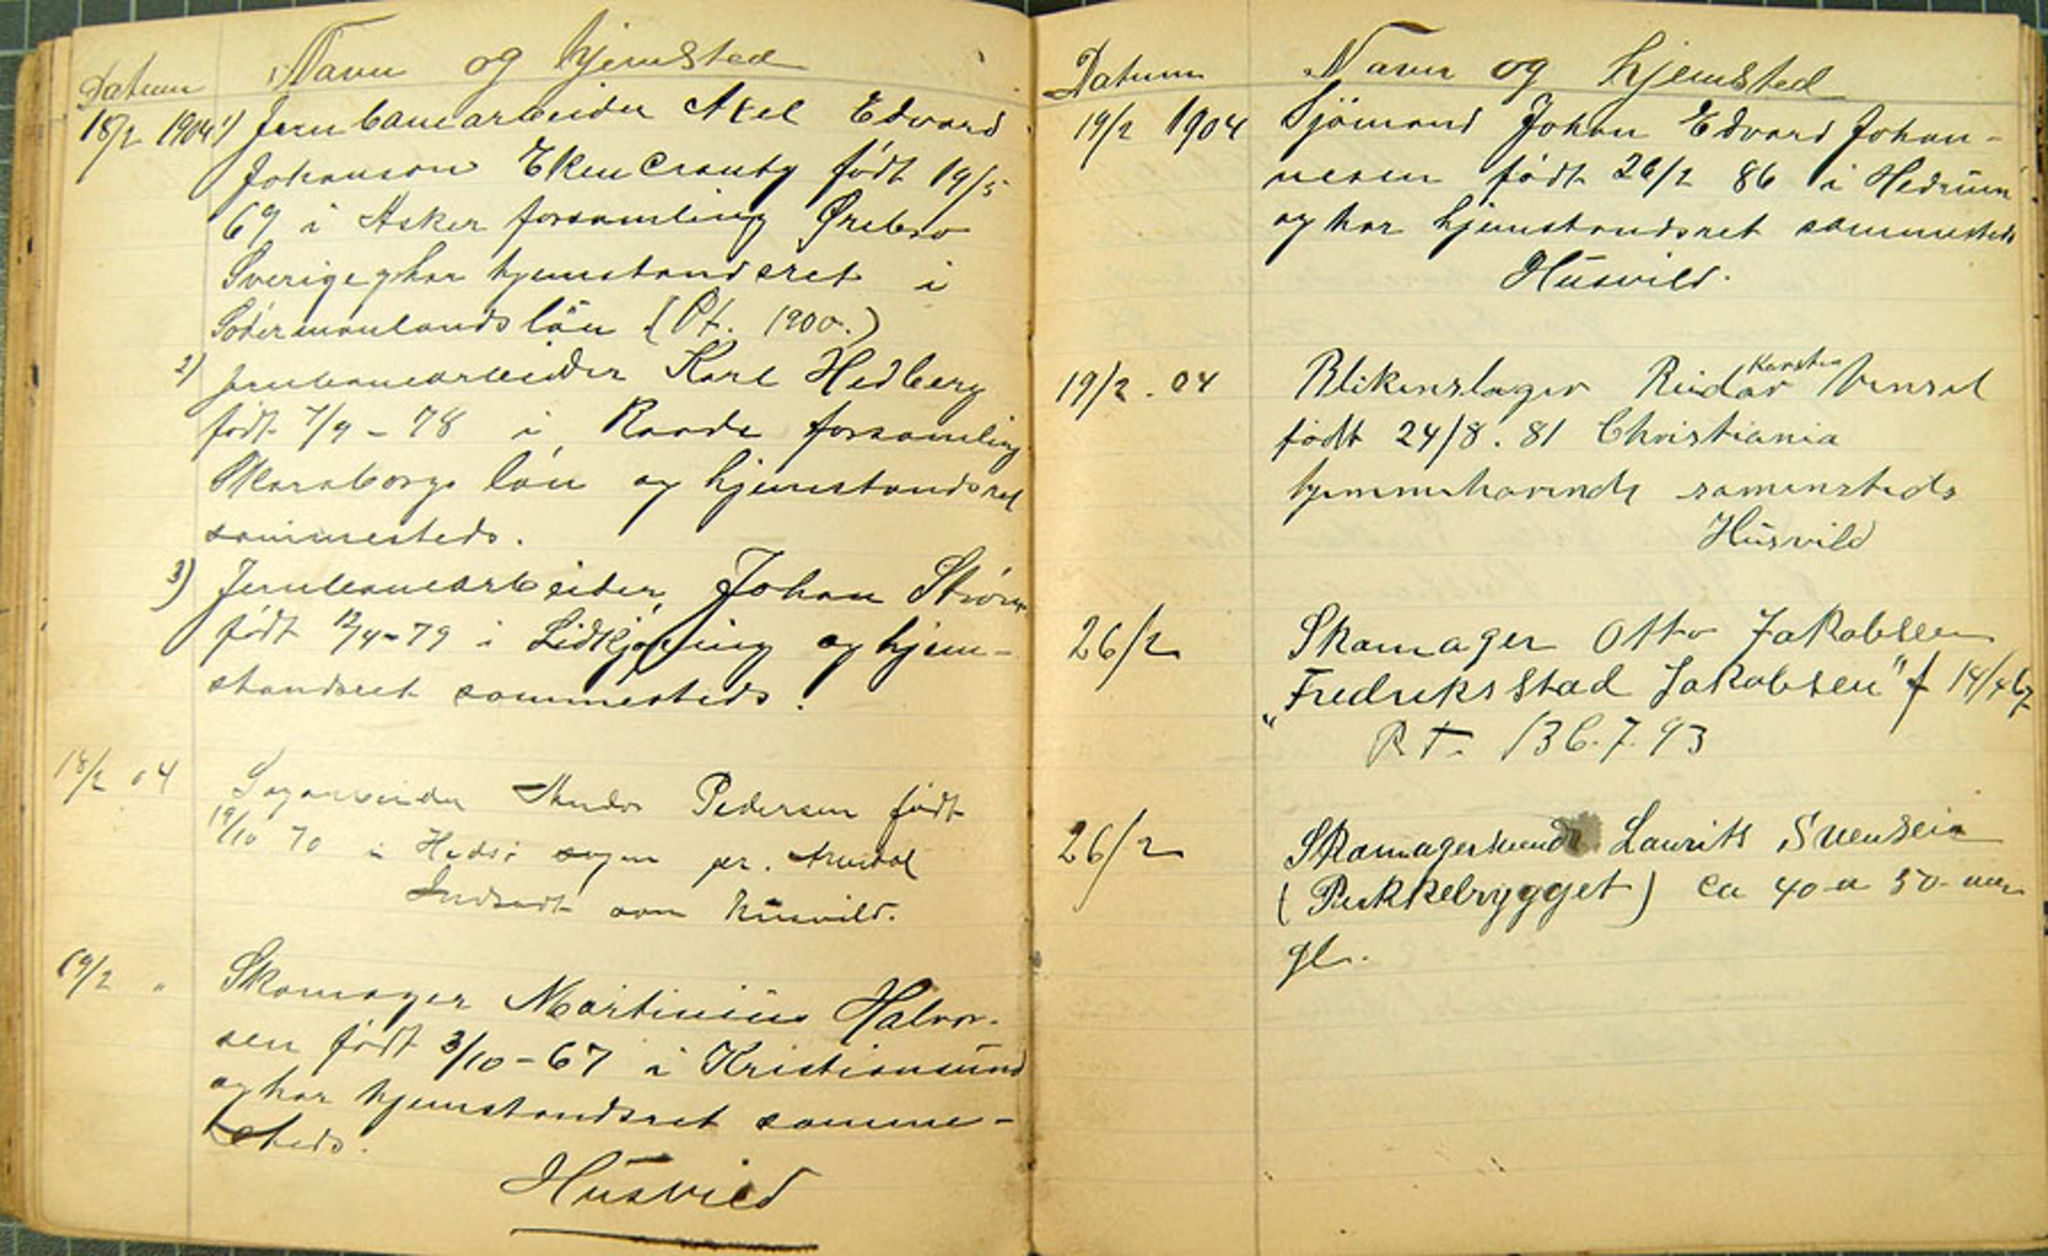 Datum Navn og hjemsted
18/2 1904 1) Jernbanearbeider Axel Edvard
Johanson Ekencranty født 19/5
69 i Asker forsamling Ørebro
Sverige g har hjemstandsret i
Södermanlandslän (Pt. 1900.)
2) Jernbanearbeider Karl Hedberg
født 7/9 - 78 i Raada forsamling
Skaraborgs län og hjemstandsret
sammesteds.
3) Jernbanearbeider Johan Strøm
født 12/4 - 79 i Lidkjøping og hjem-
standsret sammesteds.
18/2 04 Sagarbeider Anders Pedersen født
19/10 70 i sogn pr. Arendal
Indsadt som husvild.
19/2 " Skomager Martinius Halvor-
sen født 3/10 - 67 i Kristiansund
og har hjemstandsret samme-
steds.
Husvild
Datum Navn og hjemsted
19/2 1904 Sjömand Johan Edvard Johan-
nesen født 26/2 86 i Hedrum
og har hjemstandsret sammesteds
Husvild.
19/2 . 04 Blikenslager Reidar Karsten Vensel
født 24/8. 81 Christiania
hjemmehørende samensteds
Husvild
26/2 Skomager Otto Jakobsen
"Fredriksstad Jakobsen" f 14/4 67
P.T. 136.7.93
26/2 Skomagersvend Laurits Svensen
(Pukkebrygget) ca 40 a 50 aar
gl.